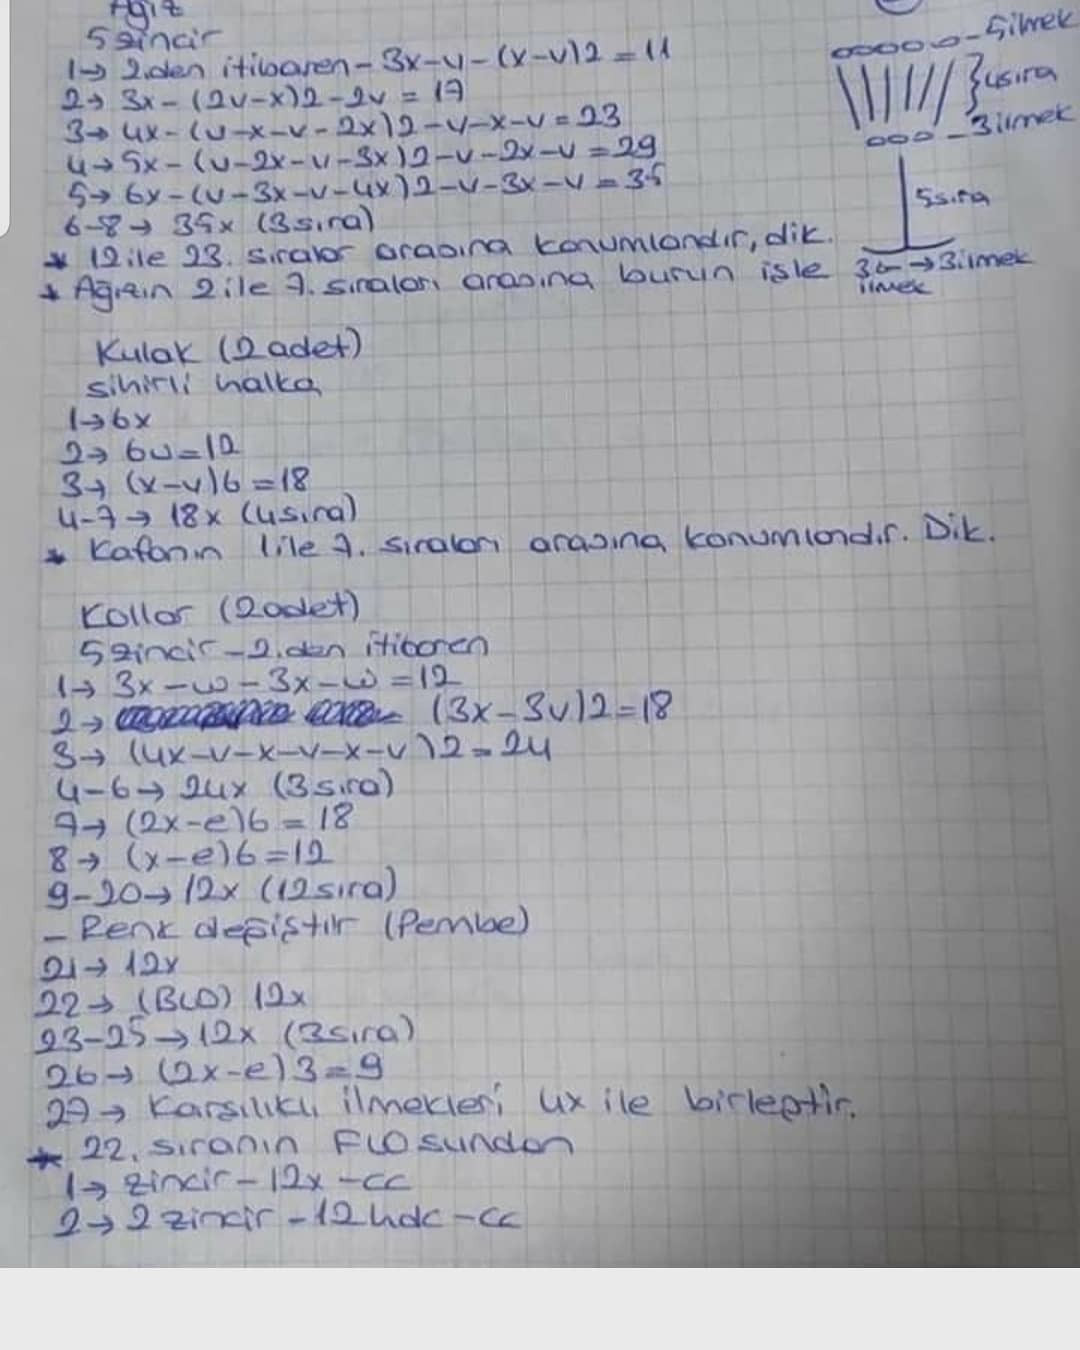 Ağız
5 zincir
1→ 2.den itibaren - 3x-v-(x-v)2=11
2→ 3x-(2v-x)2-2v=17
3→ 4x-(v-x-v-2x)2-v-x-v=23
4→ 5x-(v-2x-v-3x)2-v-2x-v=29
5→ 6x-(v-3x-v-4x)2-v-3x-v=35
6-8→ 35x (3sıra)
* 12 ile 23. sıralar arasına konumlandır, dik.
* Ağızın 2 ile 7. sıraları arasına burun işle
5ilmek
4sıra
3ilmek
5sıra
3ilmek
ilmek
Kulak (2 adet)
sihirli halka
1→6x
2→ 6v=12
3→ (x-v)6=18
4-7→ 18x (4sıra)
* Kafanın 1 ile 7. sıraları arasına konumlandır. Dik.
Kollar (2adet)
5zincir-2.den itibaren
1→ 3x-w-3x-w=12
2→ (3x-3v)2=18
3→ (4x-v-x-v-x-v)2=24
4-6→ 24x (3sıra)
7→ (2x-e)6=18
8→ (x-e)6=12
9-20→12x (12sıra)
- Renk değiştir (Pembe)
21→ 12x
22→ (BLO) 12x
23-25→12x (3sıra)
26→ (2x-e)3=9
27→ Karşılıklı ilmekleri 4x ile birleştir.
* 22. sıranın FLOsundan
1→ zincir-12x-cc
2→ 2 zincir-12hdc-cc